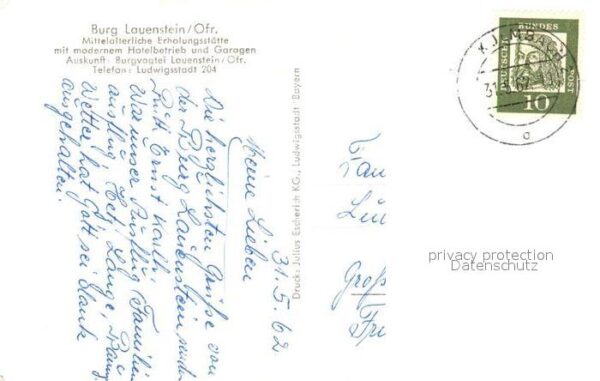 Burg Lauenstein/Ofr.
Mittelalterliche Erholungsstätte
mit modernem Hotelbetrieb und Garagen
Auskunft: Burgvogtei Lauenstein/Ofr.
Telefon: Ludwigsstadt 204
31.5.62
Meine Lieben
Die herzlichsten Grüße von
der Burg Lauenstein
Ruth, Ernst
War unser Ausflug, Familien
ausflug. Lange,
Wetter hat Gott sei Dank
ausgehalten.
Druck: Julius Escherich KG., Ludwigsstadt Bayern
DEUTSCHE
BUNDES
POST
10
31.5.62
a
Fam
Groß
privacy protection
Datenschutz